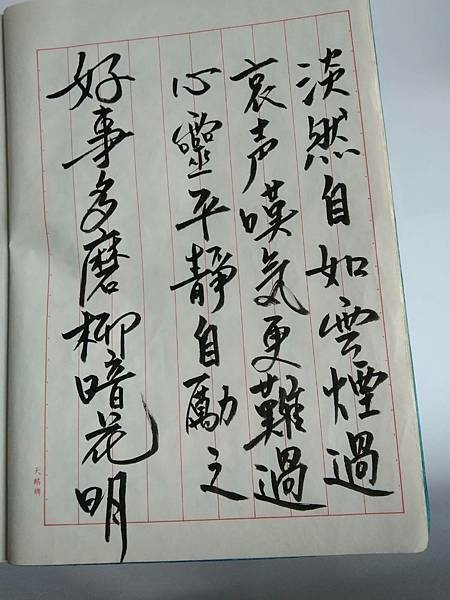 淡然自如雲煙過
哀声嘆気更難過
心靈平靜自勵之
好事多磨柳暗花明